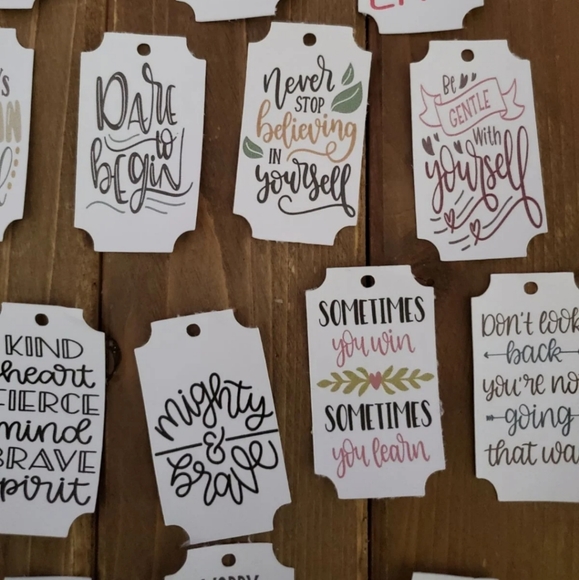 Dare
to
begin
Never
STOP
believing
IN
yourself
Be
GENTLE
With
yourself
KIND
heart
FIERCE
mind
BRAVE
spirit
mighty
&
brave
SOMETIMES
you win
SOMETIMES
you learn
Don't look
back
you're not
going
that way